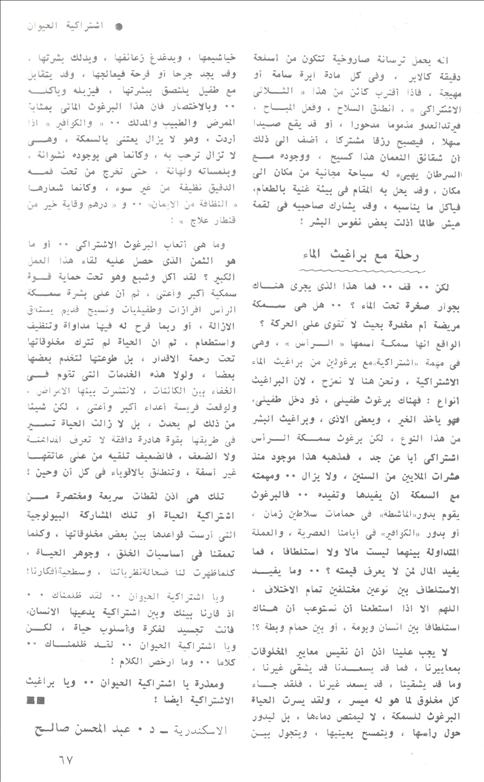 اشتراكية الحيوان
انه يعمل ترسانة صاروخية تتكون من أسلحة
دقيقة كالابر . وفى كل مادة ابرة سامة أو
مهيجة ، فاذا اقترب كائن من هذا « الثلاثى
الاشتراكى » . انطلق السلاح ، وفعل المباح ،
فيرتد العدو مذموما مدحورا ، أو قد يقع صيدا
سهلا ، فيصبح رزقا مشتركا ، أضف الى ذلك
أن شقائق النعمان هذا كسيح . ووجوده مع
السرطان يهيىء له سياحة مجانية من مكان الى
مكان ، وقد يحل به المقام فى بيئة غنية بالطعام،
فيأكل ما يناسبه ، وقد يشارك صاحبيه فى لقمة
عيش طالما أذلت بعض نفوس البشر :
رحلة مع براغيث الماء
لكن ٠٠ قف ٠٠ فما هذا الذى يجرى هناك
بجوار صخرة تحت الماء ؟ ٠٠ هل هى سمكة
مريضة ام مخدرة بحيث لا تقوى على الحركة ؟
الواقع انها سمكة اسمها « الرأس » ، وهى
فى مهمة « اشتراكية » مع برغوثين من براغيث الماء
الاشتراكية ، ونحن هنا لا نمزح ، لان البراغيث
أنواع : فهناك برغوث طفيلى ، ذو دخل طفيلى،
فهو يأخذ الخير ، ويعطى الاذى ، وبراغيث البشر
من هذا النوع ، لكن برغوث سمكة الرأس
اشتراكى أبا عن جد ، فمذهبه هذا موجود منذ
عشرات الملايين من السنين ، ولا يزال ٠٠ ومهمته
مع السمكة أن يفيدها وتفيده ٠٠ فالبرغوث
يقوم بدور «الماشطة» فى حمامات سلاطين زمان ،
أو بدور «الكوافير» فى أيامنا العصرية ، والعملة
المتداولة بينهما ليست مالا ولا استلطافا ، فما
يفيد المال لمن لا يعرف قيمته ؟ ٠٠ وما يفيد
الاستلطاف بين نوعين مختلفين تمام الاختلاف ،
اللهم الا اذا استطعنا أن نستوعب أن هناك
استلطافا بين انسان وبومة ، أو بين حمام وبطة ؟!
لا يجب علينا اذن أن نقيس معايير المخلوقات
بمعاييرنا ، فما قد يسعدنا قد يشقى غيرنا ،
وما قد يشقينا ، قد يسعد غيرنا ، فلقد جاء
كل مخلوق لما هو له ميسر ، ولقد يسرت الحياة
البرغوث للسمكة ، لا ليمتص دماءها ، بل ليدور
حول رأسها ، ويتمسح بعينيها ، ويتجول بين
خياشيمها ، ويدغدغ زعانفها ، ويدلك بشرتها ،
وقد يجد جرحا أو قرحة فيعالجها ، وقد يتقابل
مع طفيل يلتصق ببشرتها ، فيزيله ويأكله
٠٠ وبالاختصار فان هذا البرغوث المائى بمثابة
الممرض والطبيب والمدلك ٠٠ « والكوافير » اذا
أردت ، وهو لا يزال يعتنى بالسمكة ، وهى
لا تزال ترحب به ، وكأنما هى بوجوده نشوانة ،
وبلمساته ولهانة ، حتى تخرج من تحت فمه
الدقيق نظيفة من غير سوء ، وكأنما شعارها
« النظافة من الايمان» ٠٠ و « درهم وقاية خير من
قنطار علاج » :
وما هى أتعاب البرغوث الاشتراكى ٠٠ أو ما
هو الثمن الذى حصل عليه لقاء هذا العمل
الكبير ؟ لقد أكل وشبع وهو تحت حماية قوة
سمكية أكبر وأعتى ، ثم أن على بشرة سمكة
الرأس افرازات وطفيليات ونسيج قديم يستحق
الازالة ، أو ربما قرح له فيها مداواة وتنظيف
واستطعام ، ثم أن الحياة لم تترك مخلوقاتها
تحت رحمة الاقدار ، بل طوعتها لتخدم بعضها
بعضا ، ولولا هذه الخدمات التى تقوم فى
الخفاء بين الكائنات ، لانتشرت بينها الامراض ،
ولوقعت فريسة أعداء أكبر وأعتى ، لكن شيئا
من ذلك لم يحدث ، بل لا زالت الحياة تسير
فى طريقها بقوة هادرة دافقة لا تعرف المداهنة
ولا الضعف ، فالضعيف تلقيه من على عاتقها
غير آسفة ، وتنطلق بالاقوياء فى كل آن وحين !
تلك هى اذن لقطات سريعة ومختصرة من
اشتراكية الحياة أو تلك المشاركة البيولوجية
التى أرست قواعدها بين بعض مخلوقاتها ، وكلما
تعمقنا فى أساسيات الخلق ، وجوهر الحياة ،
كلما ظهرت لنا ضحالة نظرياتنا ، وسطحية أفكارنا!
ويا اشتراكية الحيوان ٠٠ لقد ظلمناك ٠٠
اذ قارنا بينك وبين اشتراكية يدعيها الانسان،
فأنت تجسيد لفكرة وأسلوب حياة ، لكن
ويا اشتراكية الحيوان ٠٠ لقد ظلمناك ٠٠
كلاما ٠٠ وما أرخص الكلام :
ومعذرة يا اشتراكية الحيوان ٠٠ ويا براغيث
الاشتراكية أيضا !
الاسكندرية ــ د ٠ عبد المحسن صالح
٦٧